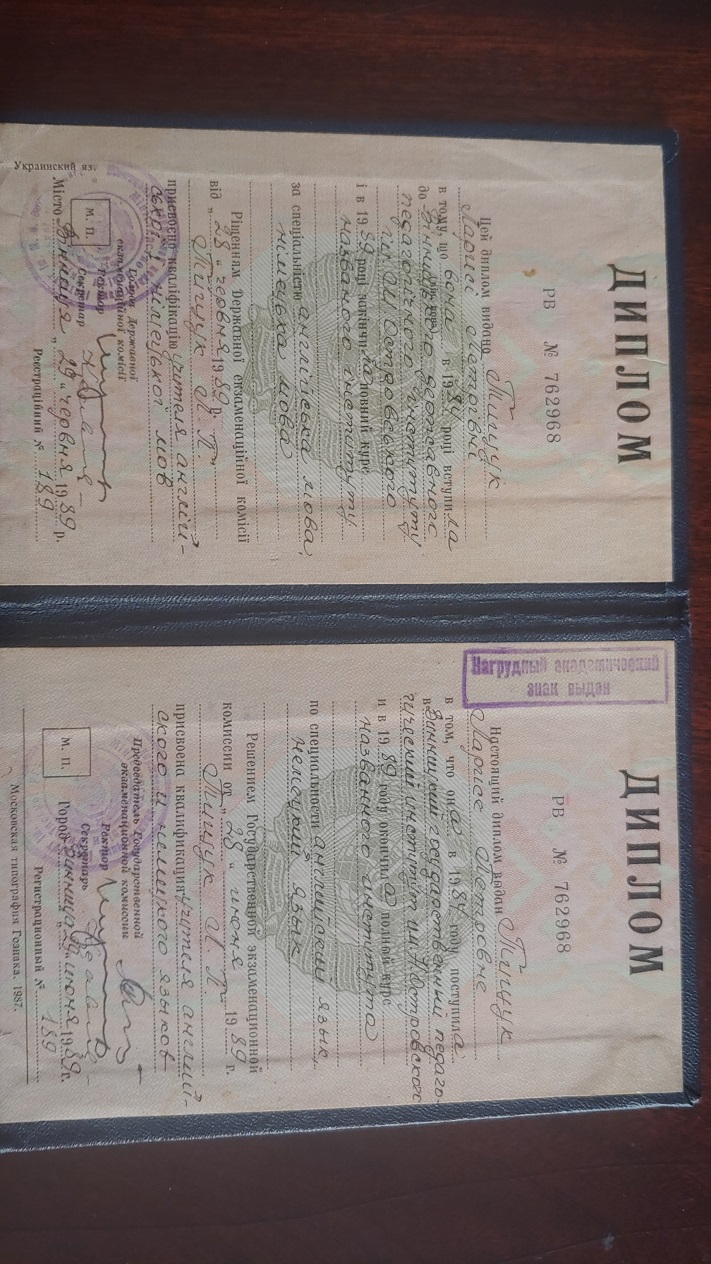 ДИПЛОМ
РВ № 762968
Цей диплом видано Тищук
Ларисі Петрівні
в тому, що вона в 1984 році вступила
до Вінницького державного
педагогічного інституту
ім. Островського
і в 1989 році закінчила повний курс
названого інституту
за спеціальністю англійська мова,
німецька мова
Рішенням Державної екзаменаційної комісії
від „28“ червня 1989 р.
Тищук Л. П.
присвоєно кваліфікацію учителя англій-
ської і німецької мов
Голова Державної
екзаменаційної комісії
Ректор
Секретар
М. П.
Місто Вінниця „29“ червня 1989 р.
Реєстраційний № 189
Украинский яз.
Нагрудный академический
знак выдан
ДИПЛОМ
РВ № 762968
Настоящий диплом выдан Тищук
Ларисе Петровне
в том, что она в 1984 году поступила
в Винницкий государственный педаго-
гический институт им. Н. Островского
и в 1989 году окончила полный курс
названного института
по специальности английский язык,
немецкий язык
Решением Государственной экзаменационной
комиссии от „28“ июня 1989 г.
Тищук Л. П.
присвоена квалификация учителя англий-
ского и немецкого языков
Председатель Государственной
экзаменационной комиссии
Ректор
Секретарь
М. П.
Город Винница 29 июня 1989 г.
Регистрационный № 189
Московская типография Гознака. 1987.